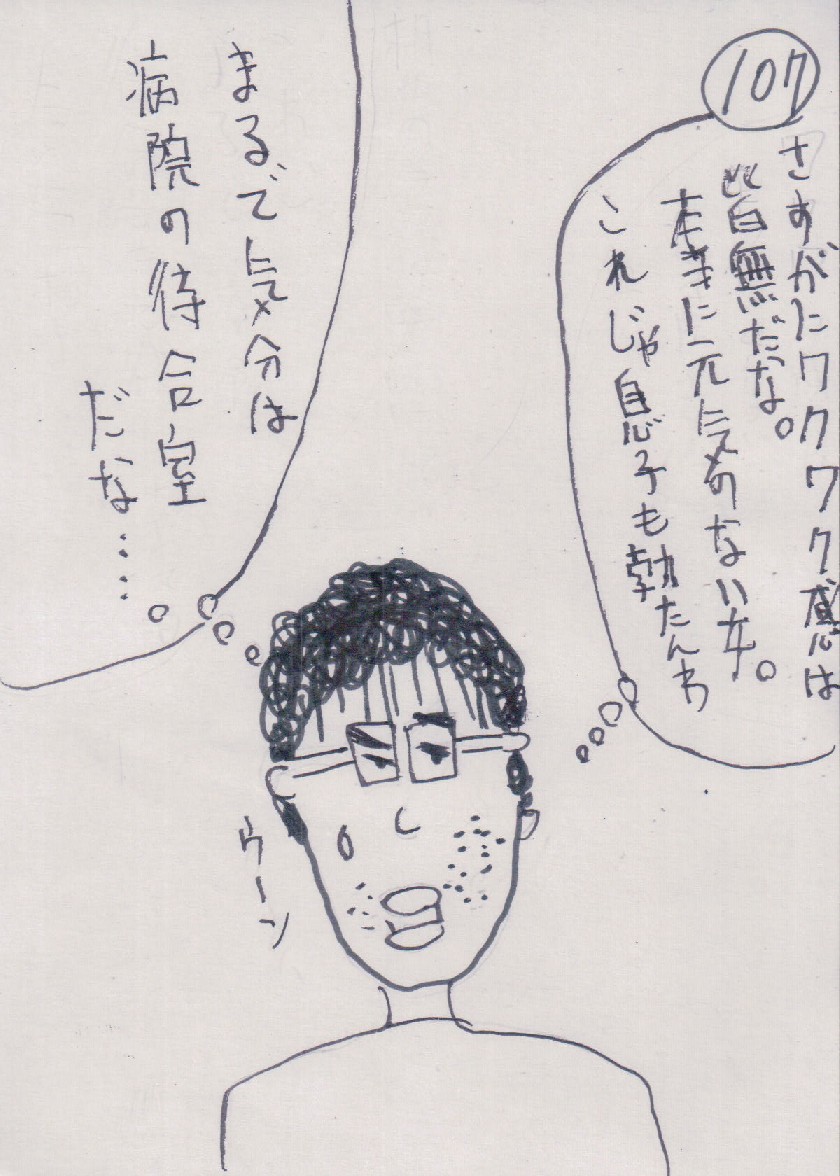 107
さすがにワクワク感は
皆無だな。
本当に元気のない女。
これじゃ息子も勃たんわ
まるで気分は
病院の待合室
だな・・・・
ウーン